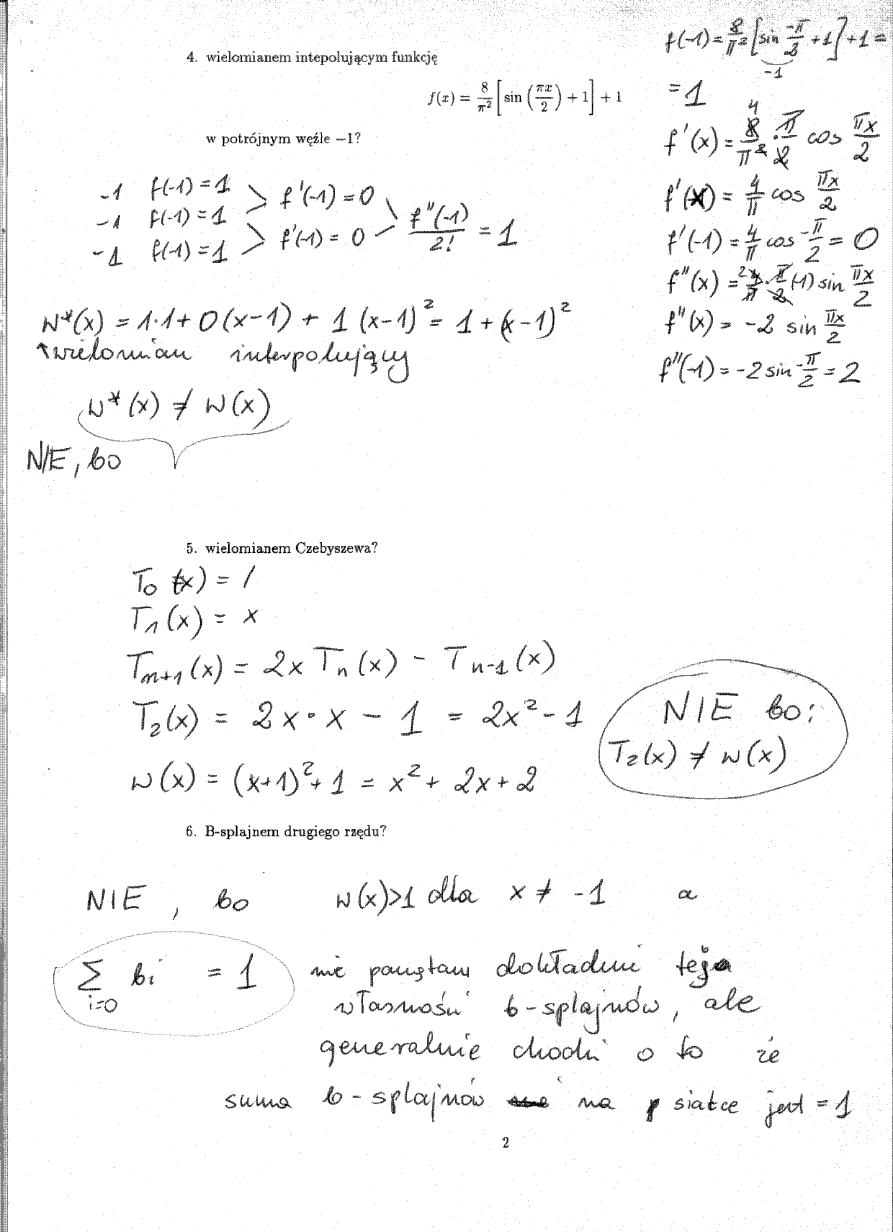 4. wielomianem intepolującym funkcję
f(x) = 8/π² [sin (πx/2) + 1] + 1
w potrójnym węźle −1?
f(-1) = 8/π² [sin -π/2 + 1] + 1 =
-1
= 1
f'(x) = 8/π² · π/2 cos πx/2
4
f'(x) = 4/π cos πx/2
f'(-1) = 4/π cos -π/2 = 0
f''(x) = 4/π · π/2 (-1) sin πx/2
2
f''(x) = -2 sin πx/2
f''(-1) = -2 sin -π/2 = 2
-1 f(-1) = 1 > f'(-1) = 0
-1 f(-1) = 1 > f''(-1)/2! = 1
-1 f(-1) = 1 > f'(-1) = 0
w*(x) = 1·1 + 0(x-1) + 1(x-1)² = 1 + (x-1)²
↑ wielomian interpolujący
w*(x) ≠ w(x)
NIE, bo
5. wielomianem Czebyszewa?
T₀(x) = 1
T₁(x) = x
Tₙ₊₁(x) = 2x Tₙ(x) - Tₙ₋₁(x)
T₂(x) = 2x · x - 1 = 2x² - 1
NIE bo:
T₂(x) ≠ w(x)
w(x) = (x+1)² + 1 = x² + 2x + 2
6. B-splajnem drugiego rzędu?
NIE, bo w(x)>1 dla x ≠ -1 a
∑ bi = 1 nie pamiętam dokładnie tej
i=0
własności b-splajnów, ale
generalnie chodzi o to że
suma b-splajnów na siatce jest = 1
2